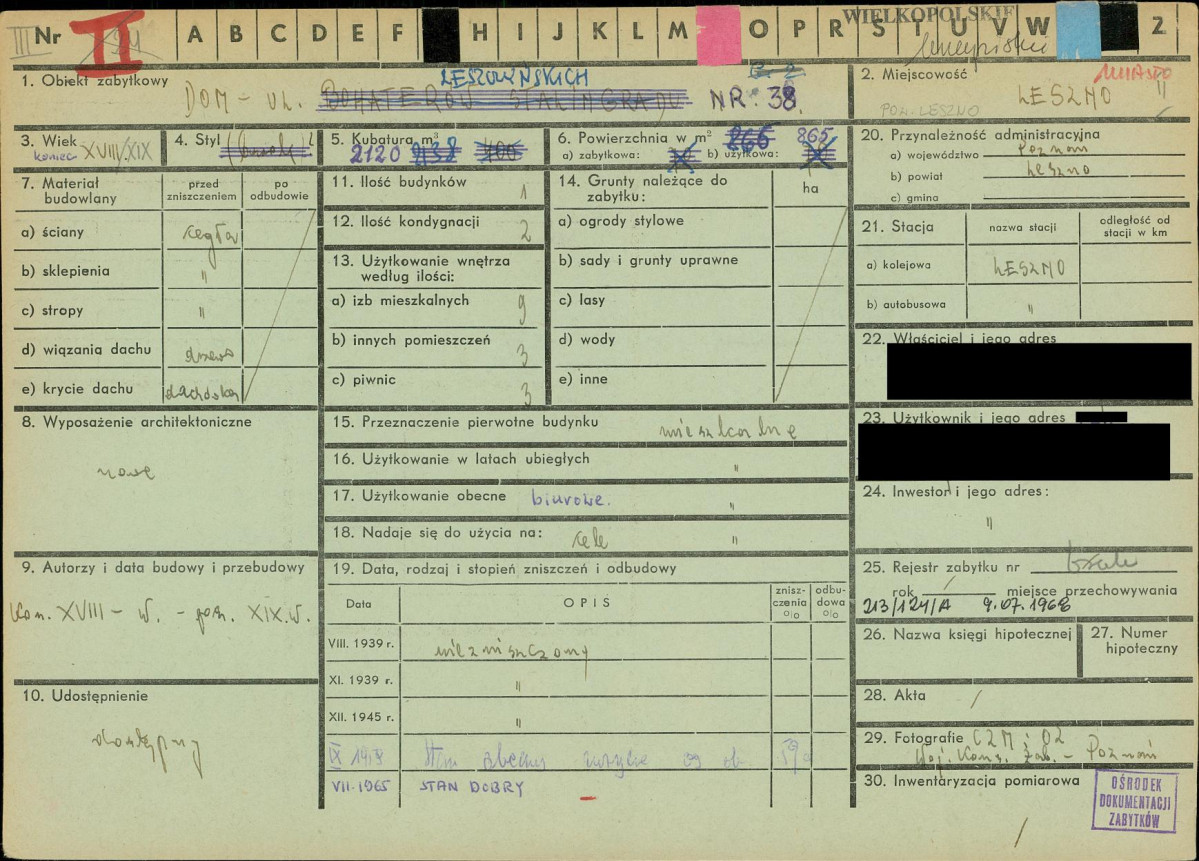 III Nr II A B C D E F H I J K L M O P R S T U V W Z
WIELKOPOLSKIE
1. Obiekt zabytkowy
LESZCZYŃSKICH
DOM - UL. BOHATERÓW STALINGRADU NR. 38.
2. Miejscowość
MIASTO
LESZNO "
POW. LESZNO
3. Wiek
koniec XVIII/XIX
4. Styl
5. Kubatura m³
2120 700
6. Powierzchnia w m² 866 865
a) zabytkowa: b) użytkowa:
20. Przynależność administracyjna
a) województwo Poznań
b) powiat Leszno
c) gmina
7. Materiał budowlany
przed zniszczeniem
po odbudowie
a) ściany cegła
b) sklepienia "
c) stropy "
d) wiązania dachu drzewo
e) krycie dachu dachówka
11. Ilość budynków 1
12. Ilość kondygnacji 2
13. Użytkowanie wnętrza
według ilości:
a) izb mieszkalnych 9
b) innych pomieszczeń 3
c) piwnic 3
14. Grunty należące do
zabytku:
ha
a) ogrody stylowe
b) sady i grunty uprawne
c) lasy
d) wody
e) inne
21. Stacja
nazwa stacji
odległość od
stacji w km
a) kolejowa LESZNO
b) autobusowa "
22. Właściciel i jego adres
23. Użytkownik i jego adres
24. Inwestor i jego adres:
"
8. Wyposażenie architektoniczne
nowe
15. Przeznaczenie pierwotne budynku mieszkalne
16. Użytkowanie w latach ubiegłych "
17. Użytkowanie obecne biurowe. "
18. Nadaje się do użycia na: cele "
9. Autorzy i data budowy i przebudowy
Kon. XVIII - W. - pocz. XIX.W.
19. Data, rodzaj i stopień zniszczeń i odbudowy
Data
OPIS
znisz-
czenia
o|o
odbu-
dowa
o|o
VIII. 1939 r. niezniszczony
XI. 1939 r. "
XII. 1945 r. "
Stan obecny
VII-1965 STAN DOBRY
10. Udostępnienie
dostępny
25. Rejestr zabytku nr
rok / miejsce przechowywania
213/124/A 9.07.1968
26. Nazwa księgi hipotecznej
27. Numer
hipoteczny
28. Akta /
29. Fotografie CZM i OZ
Woj. Kons. Zab. - Poznań
30. Inwentaryzacja pomiarowa
/
OŚRODEK
DOKUMENTACJI
ZABYTKÓW